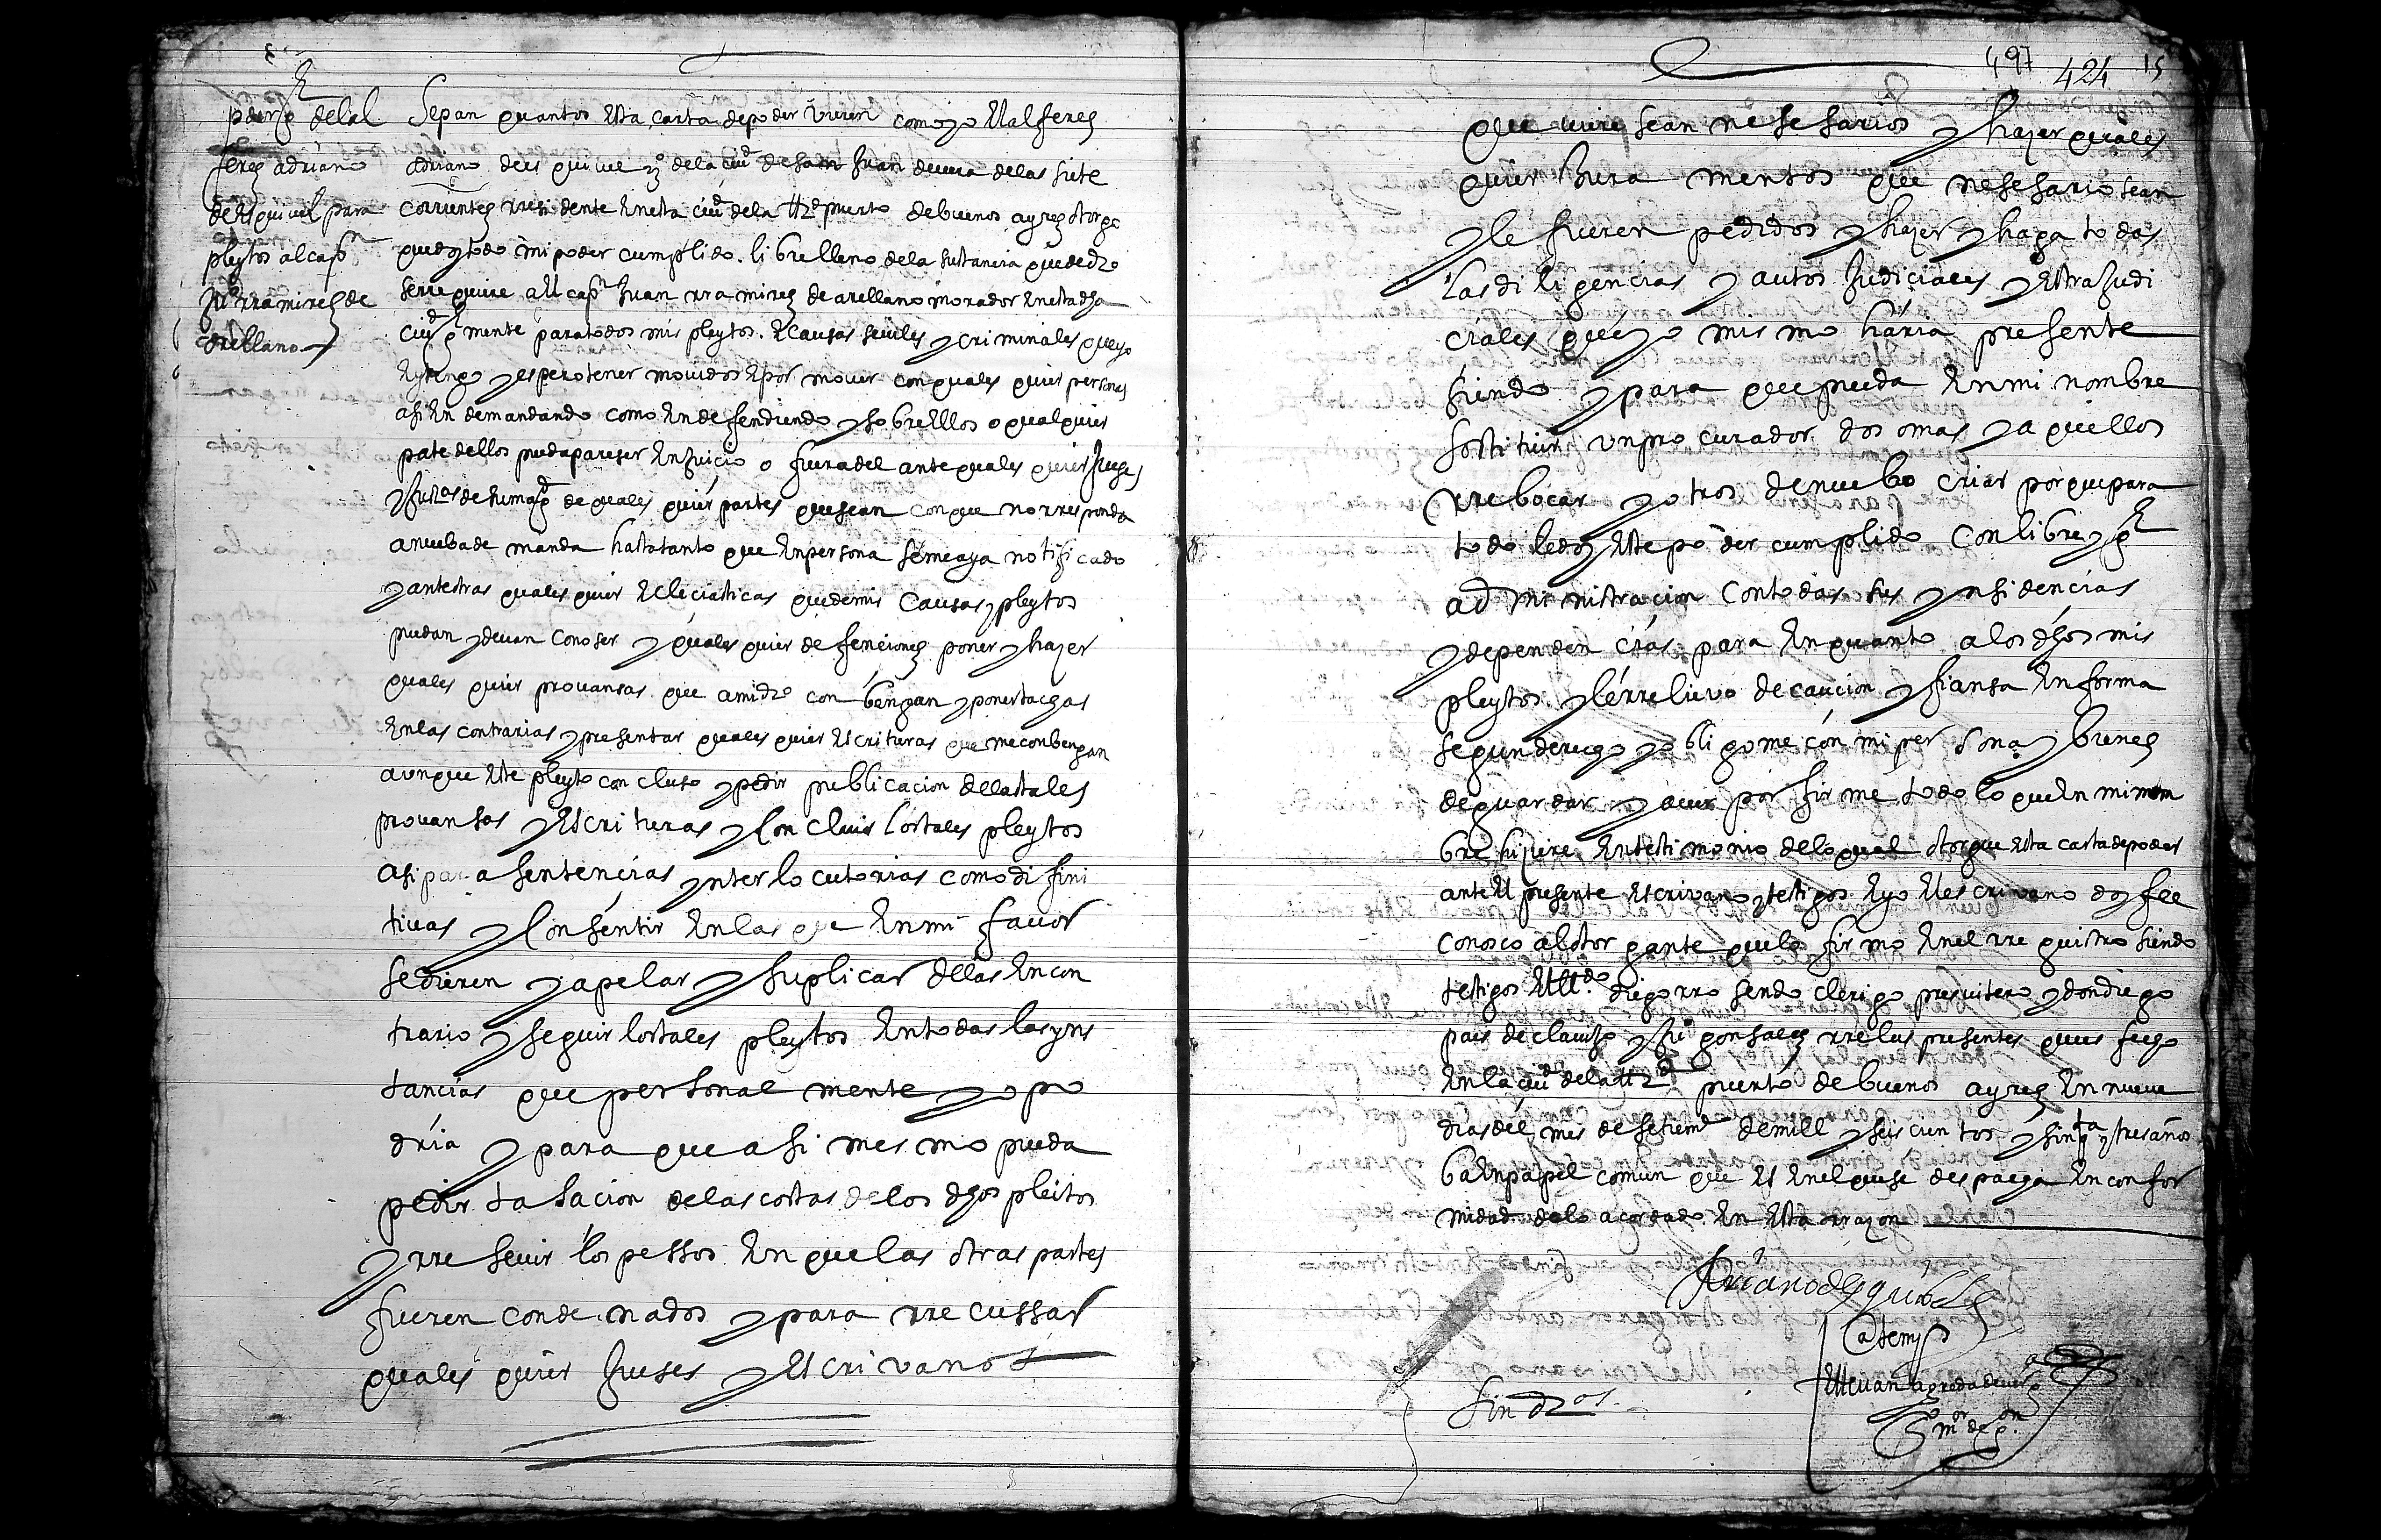 poder g^l del al
ferez adriano
de esquivel para
pleytos al cap^n
Ju^o rramirez de
arellano
Sepan quantos esta carta de poder vieren como yo el alferez
adriano de esquivel v^o de la ciu^d de san Juan de vera de las siete
corrientes rresidente en esta ciu^d de la tt^d puerto de buenos ayres otorgo
que doy todo mi poder cumplido libre lleno de la sustancia que de d^ro
se rrequiere a el cap^n Juan rramirez de arellano morador en esta dha
ciu^d g^l mente para todos mis pleytos e causas seviles y criminales que yo
e y tengo y espero tener movidos e por mover con quales quier personas
asi en demandando como en defendiendo y sobre ellos o qualquier
parte dellos pueda pareser en juicio o fuera del ante quales quier Juezes
y Justi^as de su mag^d de quales quier partes que sean con que no rresponda
a nueba demanda hasta tanto que en persona se me aya notificado
y ante otras quales quier eclesiasticas que de mis causas y pleytos
puedan y devan conoser y quales quier defenciones poner y hazer
quales quier provansas que a mi d^ro conbengan y poner tachas
en las contrarias y presentar quales quier escrituras que me conbengan
aunque este pleyto concluso y pedir publicacion de las tales
provansas y escrituras y concluir los tales pleytos
asi para sentencias ynterlocutorias como difini
tivas y consentir en las que en mi favor
se dieren y apelar y suplicar dellas en con
trario y seguir los tales pleytos en todas las yns
tancias que personal mente yo po
dria y para que asi mesmo pueda
pedir tasacion de las costas de los dhos pleitos
y rresevir los pessos en que las otras partes
fueren condenados y para rrecussar
quales quier Juses y escrivanos
497 424 15
que viere sean nesesarios y hazer quales
quier Jura mentos que nesesario sean
y le fueren pedidos y hazer y haga todas
las diligencias y autos Judiciales y estraJudi
ciales que yo mismo haria presente
siendo y para que pueda en mi nombre
sostituir un procurador dos o mas y aquellos
rrebocar y otros de nuebo criar porque para
todo le doy este poder cumplido con libre y g^l
administracion con todas sus ynsidencias
y dependencias para en quanto a los dhos mis
pleytos y le rrelievo de caucion y fiansa en forma
segun derecho y obligome con mi persona y bienes
de guardar y aver por firme todo lo que en mi nom
bre hiziere en testimonio de lo qual otorgue esta carta de poder
ante el presente escrivano y testigos e yo el escrivano doy fee
conosco al otorgante que lo firmo en el rregistro siendo
testigos el ll^do diego rrosendo clerigo presvitero y don diego
pais de clavijo y Ju^o gonsales rrelus presentes que es fecho
en la ciu^d de la tt^d puerto de buenos ayres en nueve
dias del mes de setiem^e de mill y seiscientos y sinq^ta y tres años
ba en papel comun que es en el que se despacha en confor
midad de lo acordado en esta rrazon
Adriano de esquibel
Ante my
Estevan agreda de verg^a
S^o m^or de g^on
Sin d^ros.